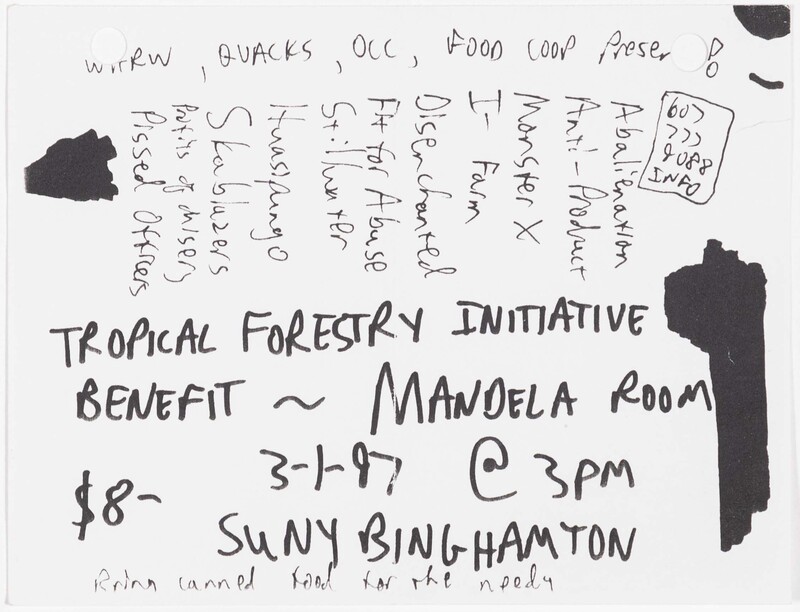 WHRW, QUACKS, OCC, FOOD COOP Presen !
607
777
9088
INFO
Abalienation
Anti-Product
Monster X
I-Farm
Disenchanted
Fit for Abuse
Stillwater
Huasipungo
Skablazers
Profits of Misery
Pissed Officers
TROPICAL FORESTRY INITIATIVE
BENEFIT ~ MANDELA ROOM
3-1-97 @ 3PM
$8-
SUNY BINGHAMTON
Bring canned food for the needy